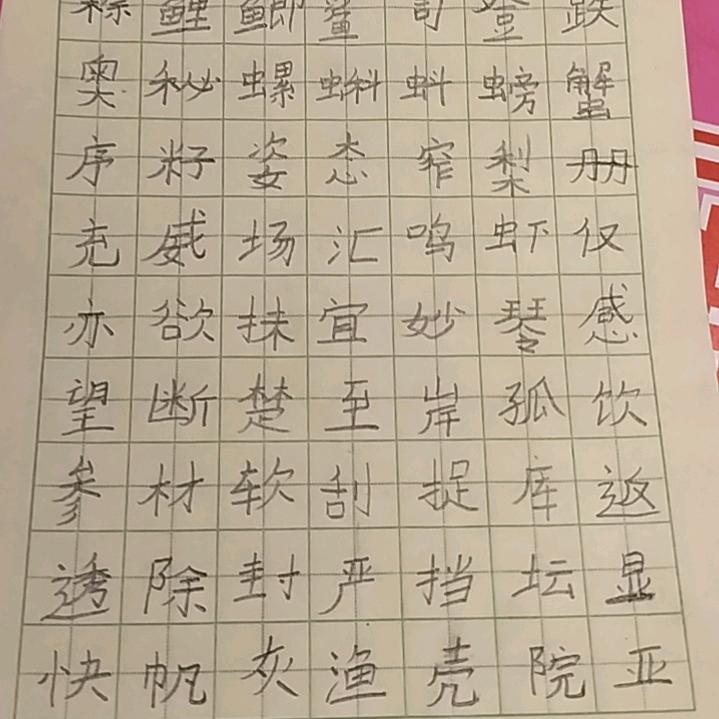 鲤 鲫 鲨 司 登 跌
奥 秘 螺 蝌 蚪 螃 蟹
序 籽 姿 态 窄 梨 册
充 威 场 汇 鸣 虾 仅
亦 欲 抹 宜 妙 琴 感
望 断 楚 至 岸 孤 饮
参 材 软 刮 捉 库 返
透 除 封 严 挡 坛 显
快 帆 灰 渔 壳 院 亚